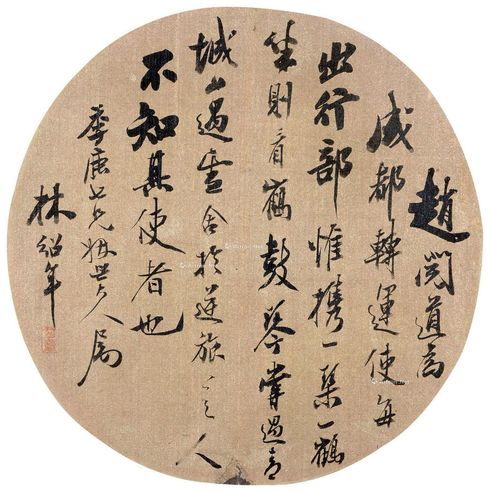 趙閱道為
成都轉運使每
出行部惟携一琹一鶴
坐則看鶴鼓琴嘗過青
城山遇雪舍於逆旅之人
不知其使者也
季兄姻世大人属
林紹年